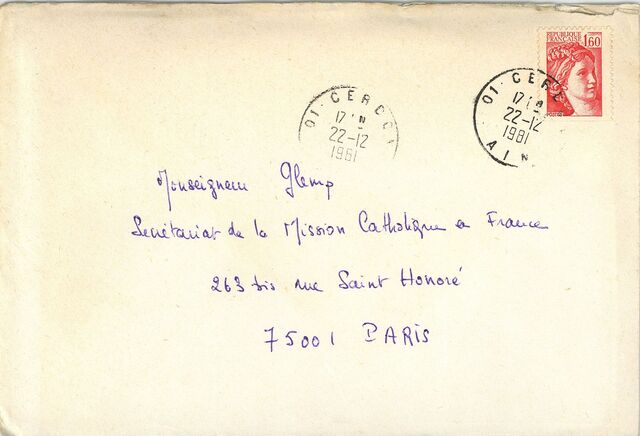 REPUBLIQUE
FRANÇAISE 1,60
01 - CERDON
17 H
22-12
1981
01 - CERD
17 H
22-12
1981
AIN
Monseigneur Glemp
Secrétariat de la Mission Catholique en France
263 bis rue Saint Honoré
75001 PARIS